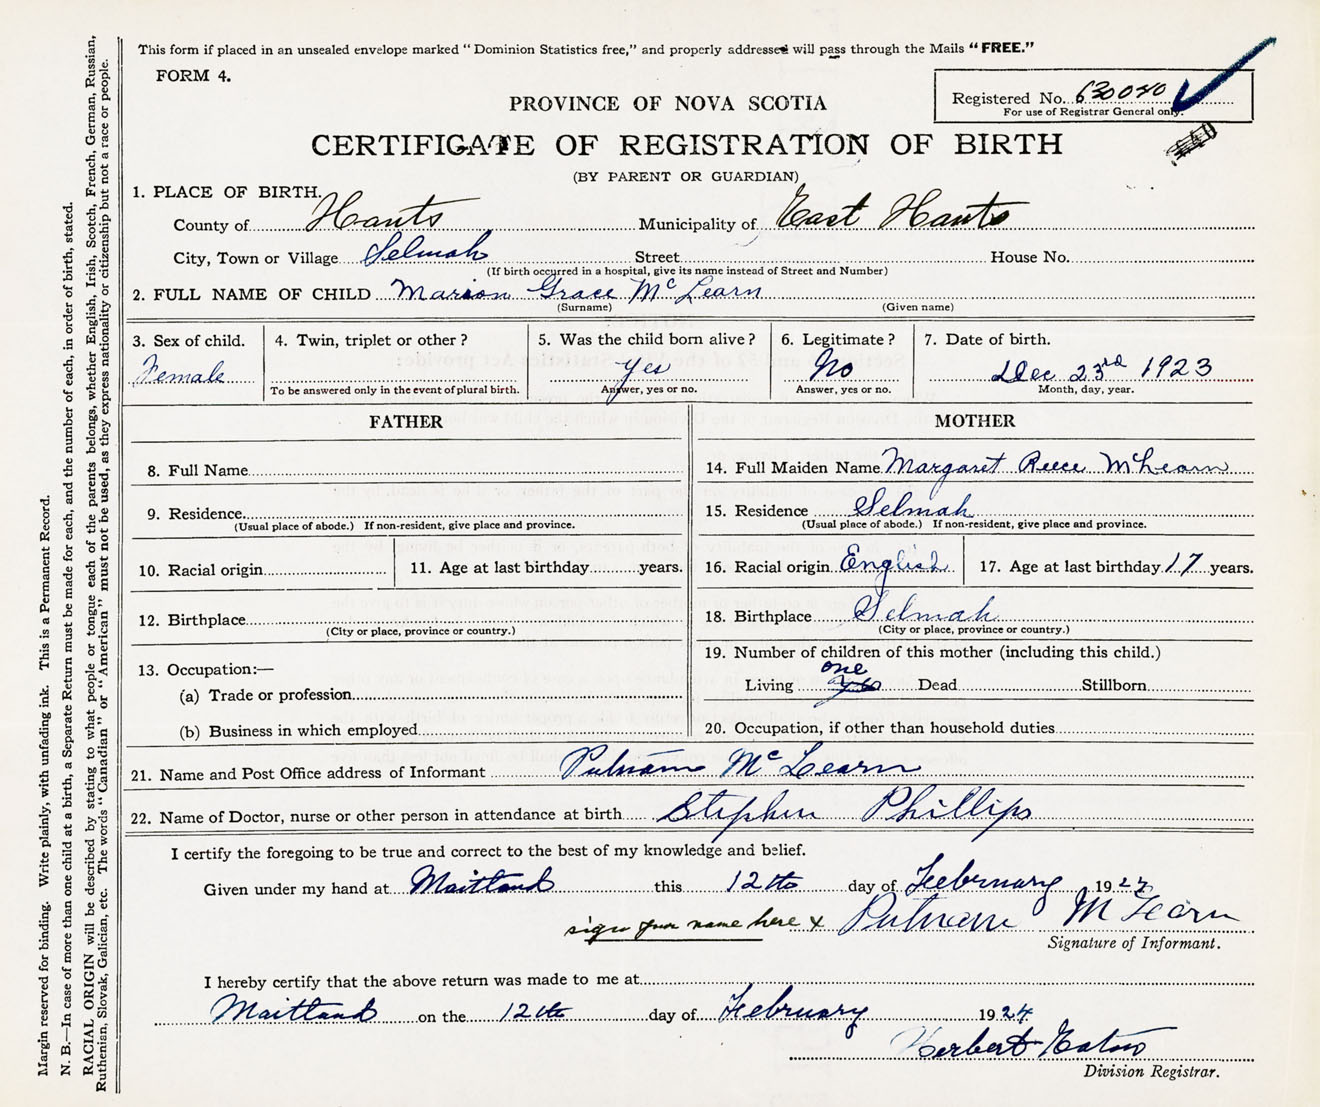 This form if placed in an unsealed envelope marked “ Dominion Statistics free,” and properly addressed will pass through the Mails “ FREE.”
FORM 4.
Registered No. 630040
For use of Registrar General only.
PROVINCE OF NOVA SCOTIA
CERTIFICATE OF REGISTRATION OF BIRTH
(BY PARENT OR GUARDIAN)
1. PLACE OF BIRTH.
County of Hants Municipality of East Hants
City, Town or Village Selmah Street House No.
(If birth occurred in a hospital, give its name instead of Street and Number)
2. FULL NAME OF CHILD Marion Grace McLearn
(Surname) (Given name)
3. Sex of child. 4. Twin, triplet or other ? 5. Was the child born alive ? 6. Legitimate ? 7. Date of birth.
Female Yes No Dec 23rd 1923
To be answered only in the event of plural birth. Answer, yes or no. Answer, yes or no. Month, day, year.
FATHER
8. Full Name
9. Residence.
(Usual place of abode.) If non-resident, give place and province.
10. Racial origin 11. Age at last birthday years.
12. Birthplace
(City or place, province or country.)
13. Occupation:—
(a) Trade or profession
(b) Business in which employed
MOTHER
14. Full Maiden Name Margaret Reece McLearn
15. Residence Selmah
(Usual place of abode.) If non-resident, give place and province.
16. Racial origin English 17. Age at last birthday 17 years.
18. Birthplace Selmah
(City or place, province or country.)
19. Number of children of this mother (including this child.)
one
Living Dead Stillborn
20. Occupation, if other than household duties
21. Name and Post Office address of Informant Putnam McLearn
22. Name of Doctor, nurse or other person in attendance at birth Stephen Phillips
I certify the foregoing to be true and correct to the best of my knowledge and belief.
Given under my hand at Maitland this 12th day of February 1924
sign your name here x Putnam McLearn
Signature of Informant.
I hereby certify that the above return was made to me at
Maitland on the 12th day of February 1924
Herbert Eaton
Division Registrar.
Margin reserved for binding. Write plainly, with unfading ink. This is a Permanent Record.
N. B.—In case of more than one child at a birth, a Separate Return must be made for each, and the number of each, in order of birth, stated.
RACIAL ORIGIN will be described by stating to what people or tongue each of the parents belongs, whether English, Irish, Scotch, French, German, Russian,
Ruthenian, Slovak, Galician, etc. The words “ Canadian ” or “ American ” must not be used, as they express nationality or citizenship but not a race or people.